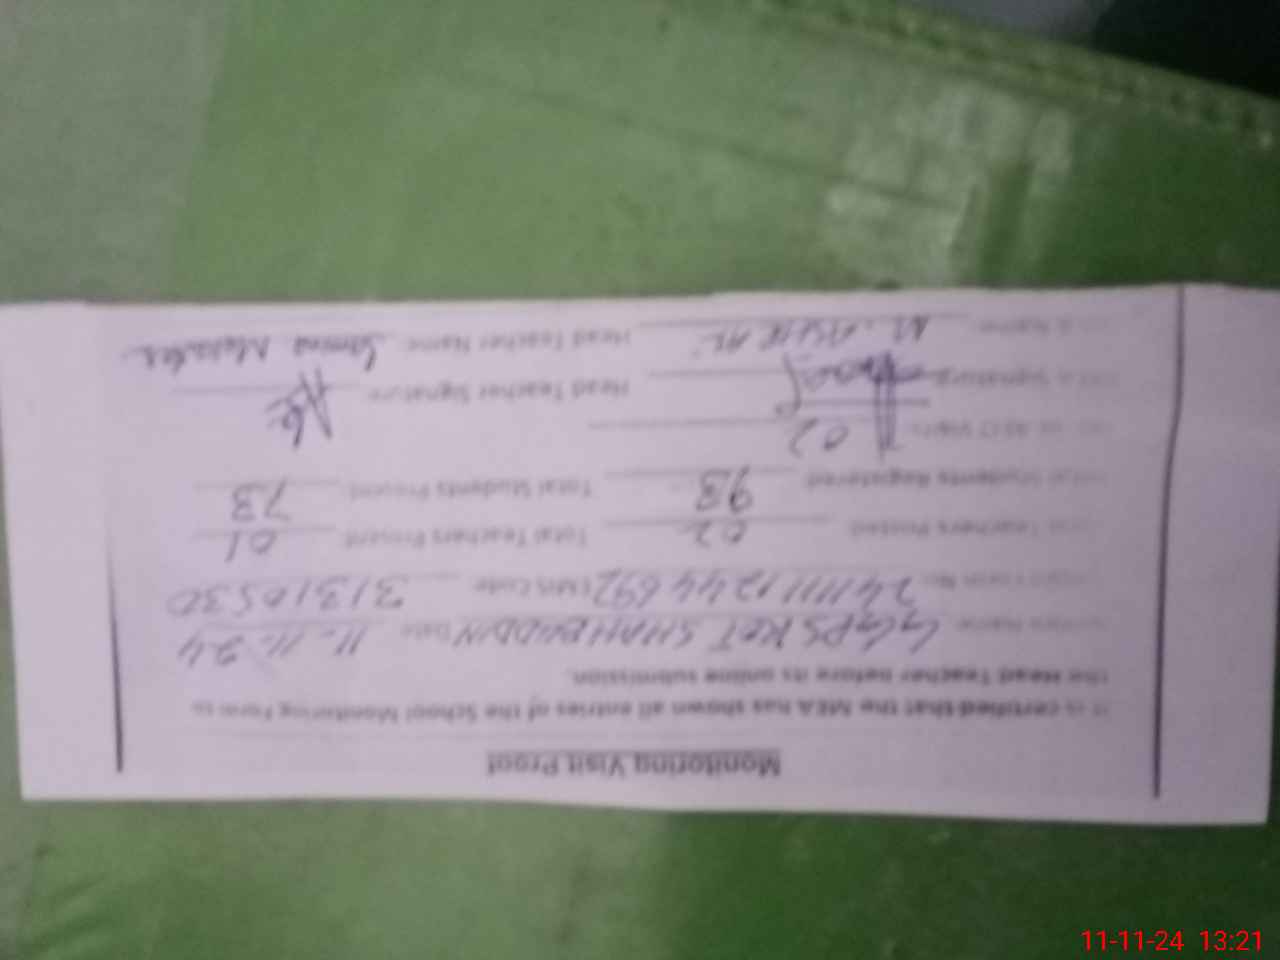 Monitoring Visit Proof
It is certified that the MEA has shown all entries of the School Monitoring Form to
the Head Teacher before its online submission.
Name GGPS KOT SHAHBUDDIN Date 11.11.24
No. 2411111244692 EMIS Code 31310530
Total Teachers Posted 02 Total Teachers Present 01
Total Students Registered 93 Total Students Present 73
Visit 02
Signature Head Teacher Signature
Name Head Teacher Name
11-11-24 13:21